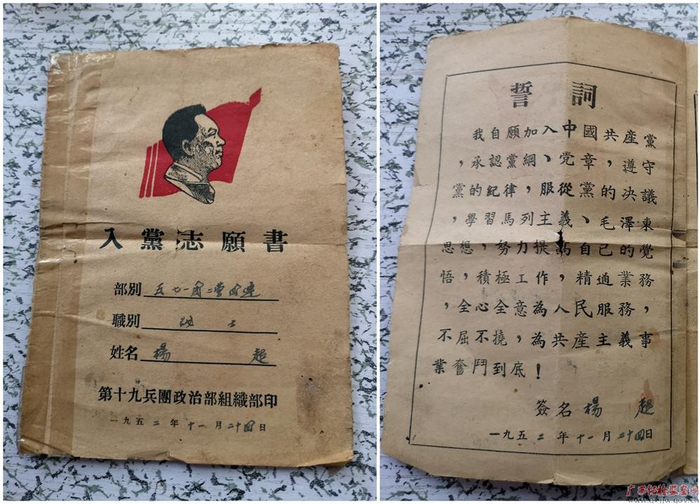 入黨志願書
部別 五七一团二营四連
職別 战士
姓名 楊 超
第十九兵團政治部組織部印
一九五二年十一月二十四日
誓詞
我自願加入中國共產黨
，承認黨綱、党章，遵守
黨的紀律，服從黨的决議
，學習馬列主義、毛澤東
思想，努力提高自己的覺
悟，積極工作，精通業務
，全心全意為人民服務，
不屈不撓，為共產主義事
業奮鬥到底！
簽名 楊 超
一九五二年十一月二十四日